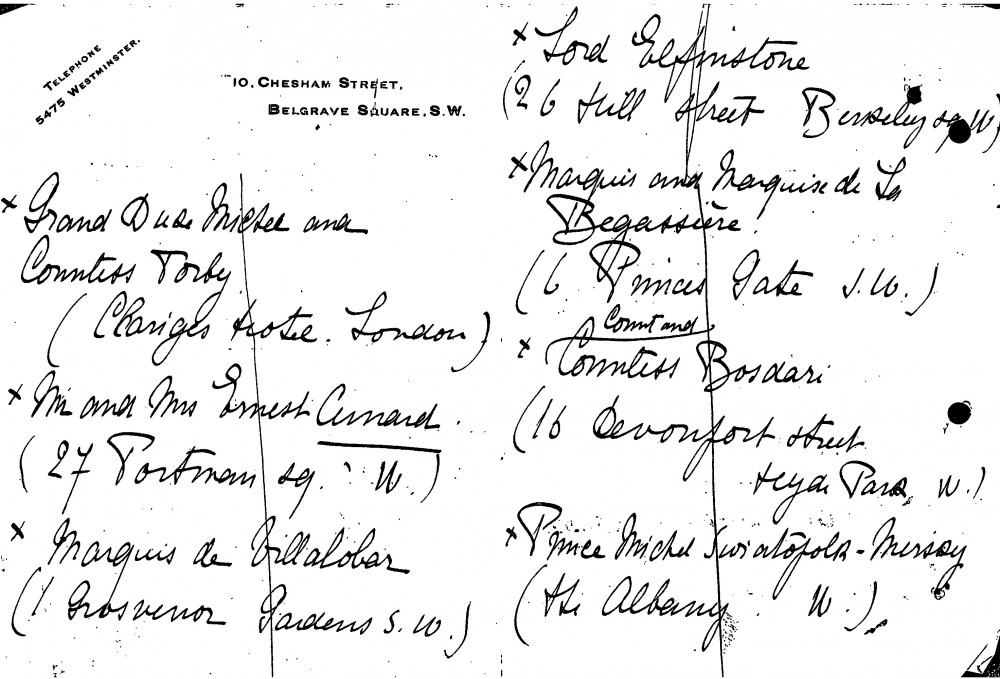 TELEPHONE
5475 WESTMINSTER.
10, CHESHAM STREET,
BELGRAVE SQUARE, S.W.
× Grand Duke Michel and
Countess Torby
(Clariges Hotel. London)
× Mr and Mrs Ernest Cunard.
(27 Portman sq. W.)
× Marquis de Villalobar
(1 Grosvenor Gardens S.W.)
× Lord Elfinstone
(26 Hill Street Berkeley sq W)
× Marquis and Marquise de La
Begassière
(6 Princes Gate S.W.)
Count and
× Countess Bosdari
(16 Devonport street
Hyde Park W.)
× Prince Michel Swiatopolk-Mirsky
(the Albany W.)